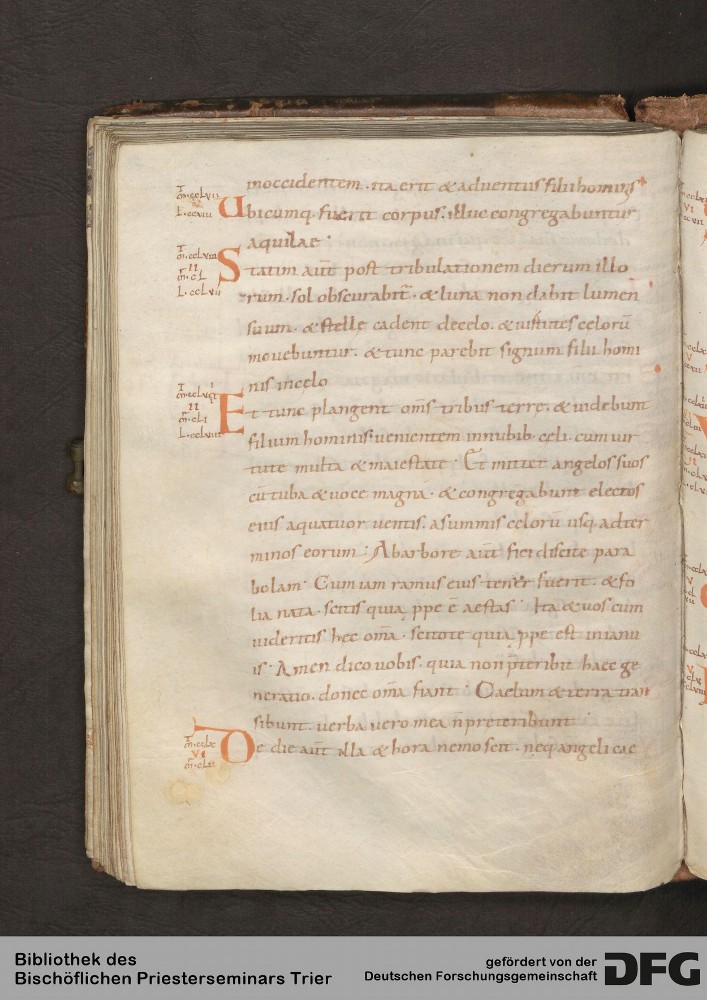 inoccidentem. ita erit & aduentus filii hominis
Ubicumq. fuerit corpus. illuc congregabuntur
aquilae.
Statim aut̄ post tribulationem dierum illo
rum. sol obscurabit̄. & luna non dabit lumen
suum. & stelle cadent decelo. & uirtutes celorū
mouebuntur. & tunc parebit signum filii homi
nis incelo
Et tunc plangent om̄s tribus terre. & uidebunt
filium hominis uenientem innubib. celi. cum uir
tute multa & maiestate. Et mittet angelos suos
cū tuba & uoce magna. & congregabunt electos
eius aquatuor uentis. asummis celorū usq. adter
minos eorum. Abarbore aut̄ fici discite para
bolam. Cum iam ramus eius tener fuerit. & fo
lia nata. scitis quia ꝓpe ē aestas. Ita & uos cum
uideritis hec om̄a. scitote quia ꝓpe est inianu
is. Amen dico uobis. quia non p̄teribit haec ge
neratio. donec om̄a fiant. Caelum & terra tran
sibunt. uerba uero mea n̄ preteribunt
De die aut̄ illa & hora nemo scit. neq. angeli cae
Bibliothek des
Bischöflichen Priesterseminars Trier
gefördert von der
Deutschen Forschungsgemeinschaft
DFG